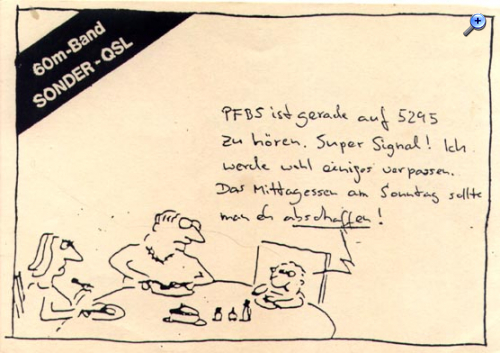 60m-Band
SONDER-QSL
PFBS ist gerade auf 5295
zu hören. Super Signal! Ich
werde wohl einiges verpassen.
Das Mittagessen am Sonntag sollte
man eh abschaffen!